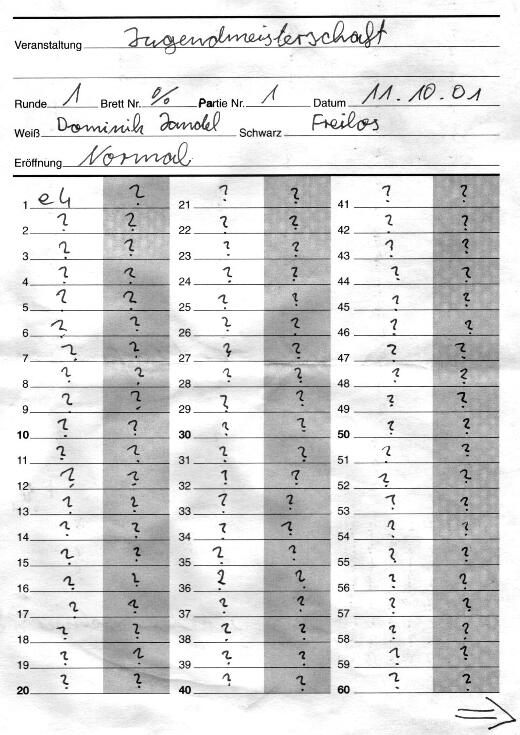 Veranstaltung Jugendmeisterschaft
Runde 1 Brett Nr. % Partie Nr. 1 Datum 11.10.01
Weiß Dominik Jandel Schwarz Freilos
Eröffnung Normal
1 e4 ?
2 ? ?
3 ? ?
4 ? ?
5 ? ?
6 ? ?
7 ? ?
8 ? ?
9 ? ?
10 ? ?
11 ? ?
12 ? ?
13 ? ?
14 ? ?
15 ? ?
16 ? ?
17 ? ?
18 ? ?
19 ? ?
20 ? ?
21 ? ?
22 ? ?
23 ? ?
24 ? ?
25 ? ?
26 ? ?
27 ? ?
28 ? ?
29 ? ?
30 ? ?
31 ? ?
32 ? ?
33 ? ?
34 ? ?
35 ? ?
36 ? ?
37 ? ?
38 ? ?
39 ? ?
40 ? ?
41 ? ?
42 ? ?
43 ? ?
44 ? ?
45 ? ?
46 ? ?
47 ? ?
48 ? ?
49 ? ?
50 ? ?
51 ? ?
52 ? ?
53 ? ?
54 ? ?
55 ? ?
56 ? ?
57 ? ?
58 ? ?
59 ? ?
60 ? ?